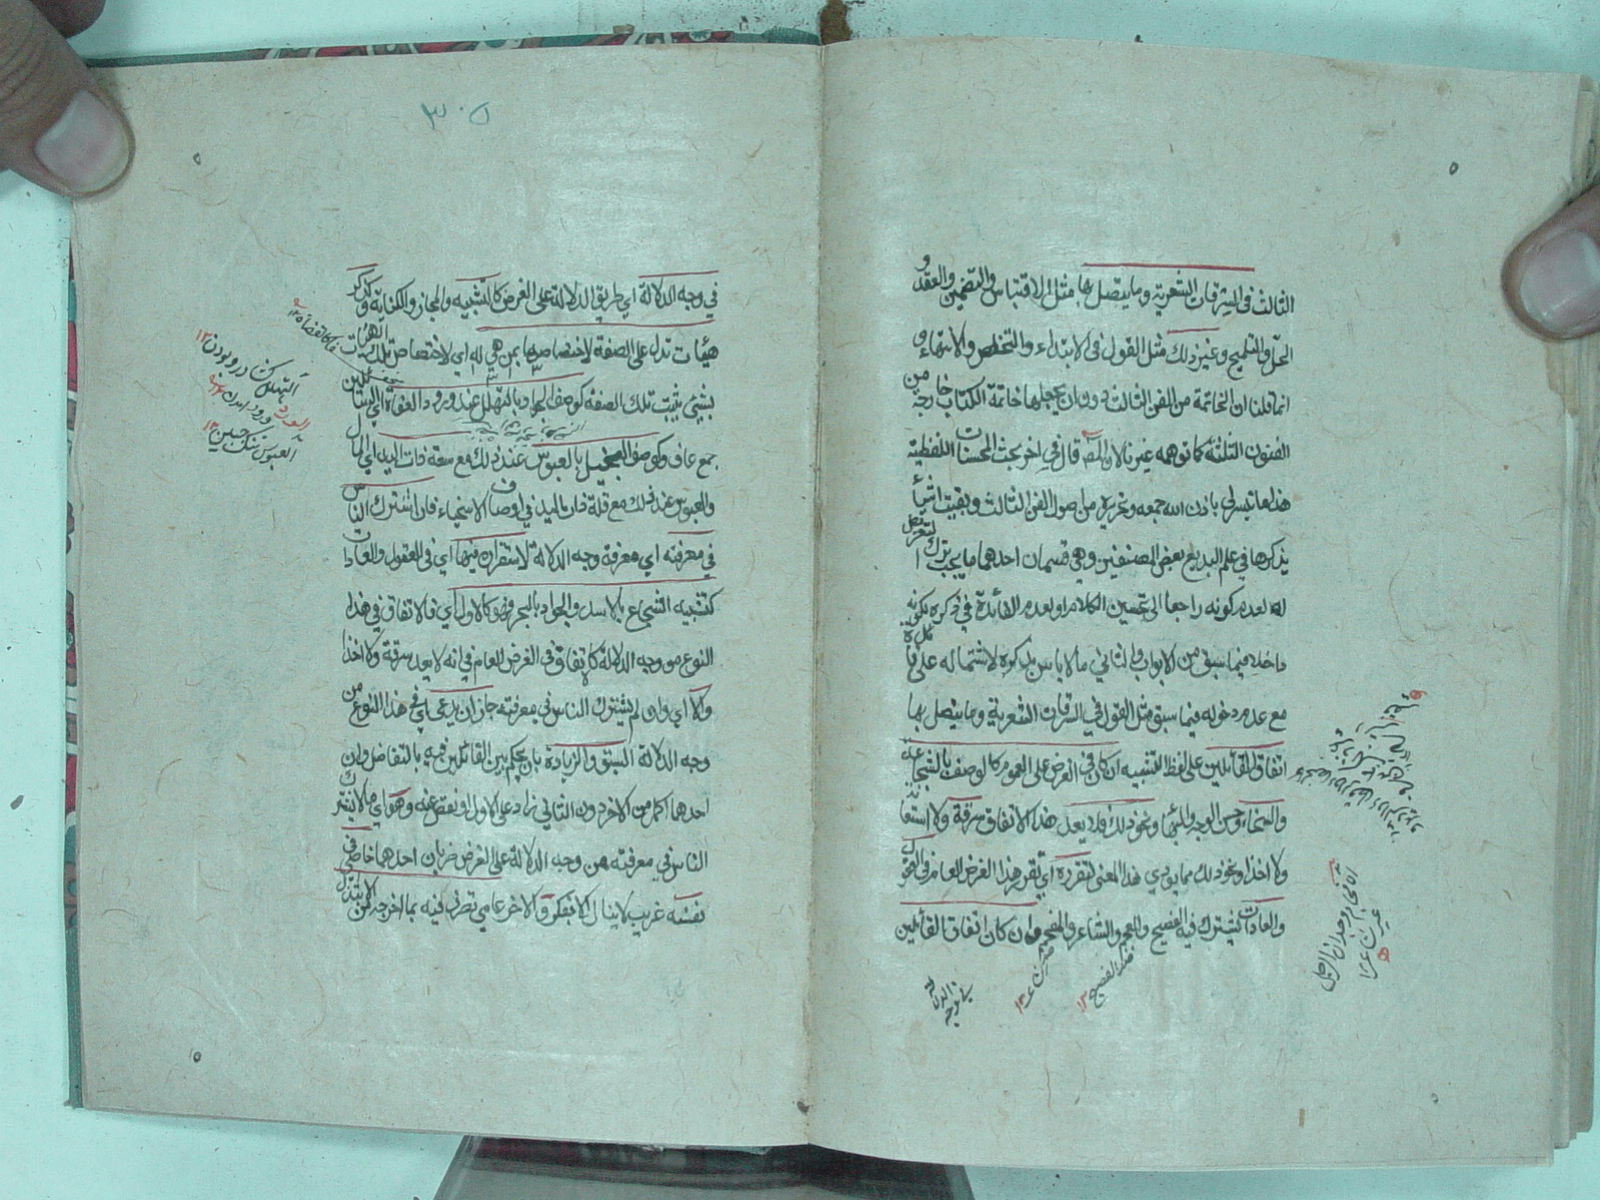 الثالث في السرقات الشعرية وما يتصل بها مثل الاقتباس والتضمين والعقد و
الحل والتلميح وغير ذلك مثل القول في الابتداء والتخلص والانتهاء و
انما قلنا ان الخاتمة من الفن الثالث دون ان يجعلها خاتمة الكتاب خارجة من
الفنون الثلثة كما توهمه غيرنا لان المصـ قال في اخر بحث المحسنات اللفظية
هذا ما تيسر لي باذن الله جمعه وتحريره من اصول الفن الثالث وبقيت اشياء
يذكرها في علم البديع بعض المصنفين وهي قسمان احدهما ما يجب ترك التعرض
له لعدم كونه راجعا الى تحسين الكلام او لعدم الفائدة في ذكره لكونه
داخلا فيما سبق من الابواب والثاني ما لا باس بذكره لاشتماله على فائدة
مع عدم دخوله فيما سبق مثل القول في السرقات الشعرية وما يتصل بها
اتفاق القائلين على لفظ التثنية ان كان في الغرض على العموم كالوصف بالشجاعة
والسخاء وحسن الوجه والبهاء ونحو ذلك فلا يعد هذا الاتفاق سرقة ولا استعانة
ولا اخذا ونحو ذلك مما يؤدي هذا المعنى لتقرره اي تقرر هذا الغرض العام في العقول
والعادات يشترك فيه الفصيح والاعجم والشاعر والمفحم وان كان اتفاق القائلين
ضد الفصيح ١٢
٣٠٥
في وجه الدلالة اي طريق الدلالة على الغرض كالتشبيه والمجاز والكناية وكذكر
هيئات تدل على الصفة لاختصاصها بمن هي له اي لاختصاص تلك الهيئات
بشئ يثبت تلك الصفة له كوصف الجواد بالتهلل عند ورود العفاة اي السائلين
جمع عاف وكوصف البخيل بالعبوس عند ذلك مع سعة ذات اليد اي المال
والعبوس عند ذلك مع قلة ذات اليد في اوصاف الاسخياء فان اشترك الناس
في معرفته اي معرفة وجه الدلالة لاستقراره فيهما اي في العقول والعادات
كتشبيه الشجاع بالاسد والجواد بالبحر فهو كالاول اي فالاتفاق في هذا
النوع من وجه الدلالة كالاتفاق في الغرض العام في انه لا يعد سرقة ولا اخذا
والا اي وان لم يشترك الناس في معرفته جاز ان يدعى فيه اي في هذا النوع من
وجه الدلالة السبق والزيادة بان يحكم بين القائلين فيه بالتفاضل وان
احدهما اكمل من الاخر وان الثاني زاد على الاول او نقص عنه وهو اي ما لا يشترك
الناس في معرفته من وجه الدلالة على الغرض ضربان احدهما خاصي في
نفسه غريب لا ينال الا بفكر والاخر عامي تصرف فيه بما اخرجه من الابتذال
العبوس تنك جبين ١٢